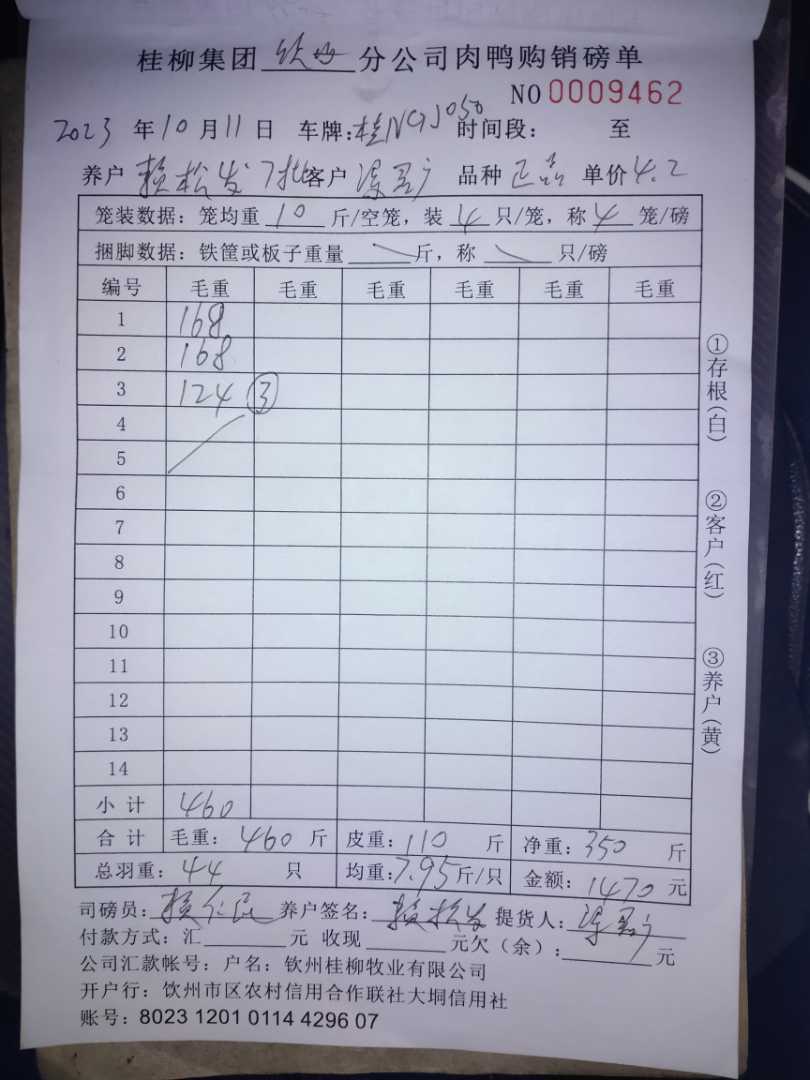 桂柳集团 钦州 分公司肉鸭购销磅单
NO 0009462
2023 年 10 月 11 日 车牌: 桂NGJ050 时间段: 至
养户 赖松发 7批 客户 品种 正品 单价 4.2
笼装数据: 笼均重 10 斤/空笼, 装 4 只/笼, 称 4 笼/磅
捆脚数据: 铁筐或板子重量 斤, 称 只/磅
编号 毛重 毛重 毛重 毛重 毛重 毛重
1 168
2 168
3 124 ③
4
5
6
7
8
9
10
11
12
13
14
小计 460
合计 毛重: 460 斤 皮重: 110 斤 净重: 350 斤
总羽重: 44 只 均重: 7.95 斤/只 金额: 1470 元
司磅员: 养户签名: 赖松发 提货人:
付款方式: 汇 元 收现 元欠(余): 元
公司汇款帐号: 户名: 钦州桂柳牧业有限公司
开户行: 饮州市区农村信用合作联社大垌信用社
账号: 8023 1201 0114 4296 07
①存根(白)
②客户(红)
③养户(黄)